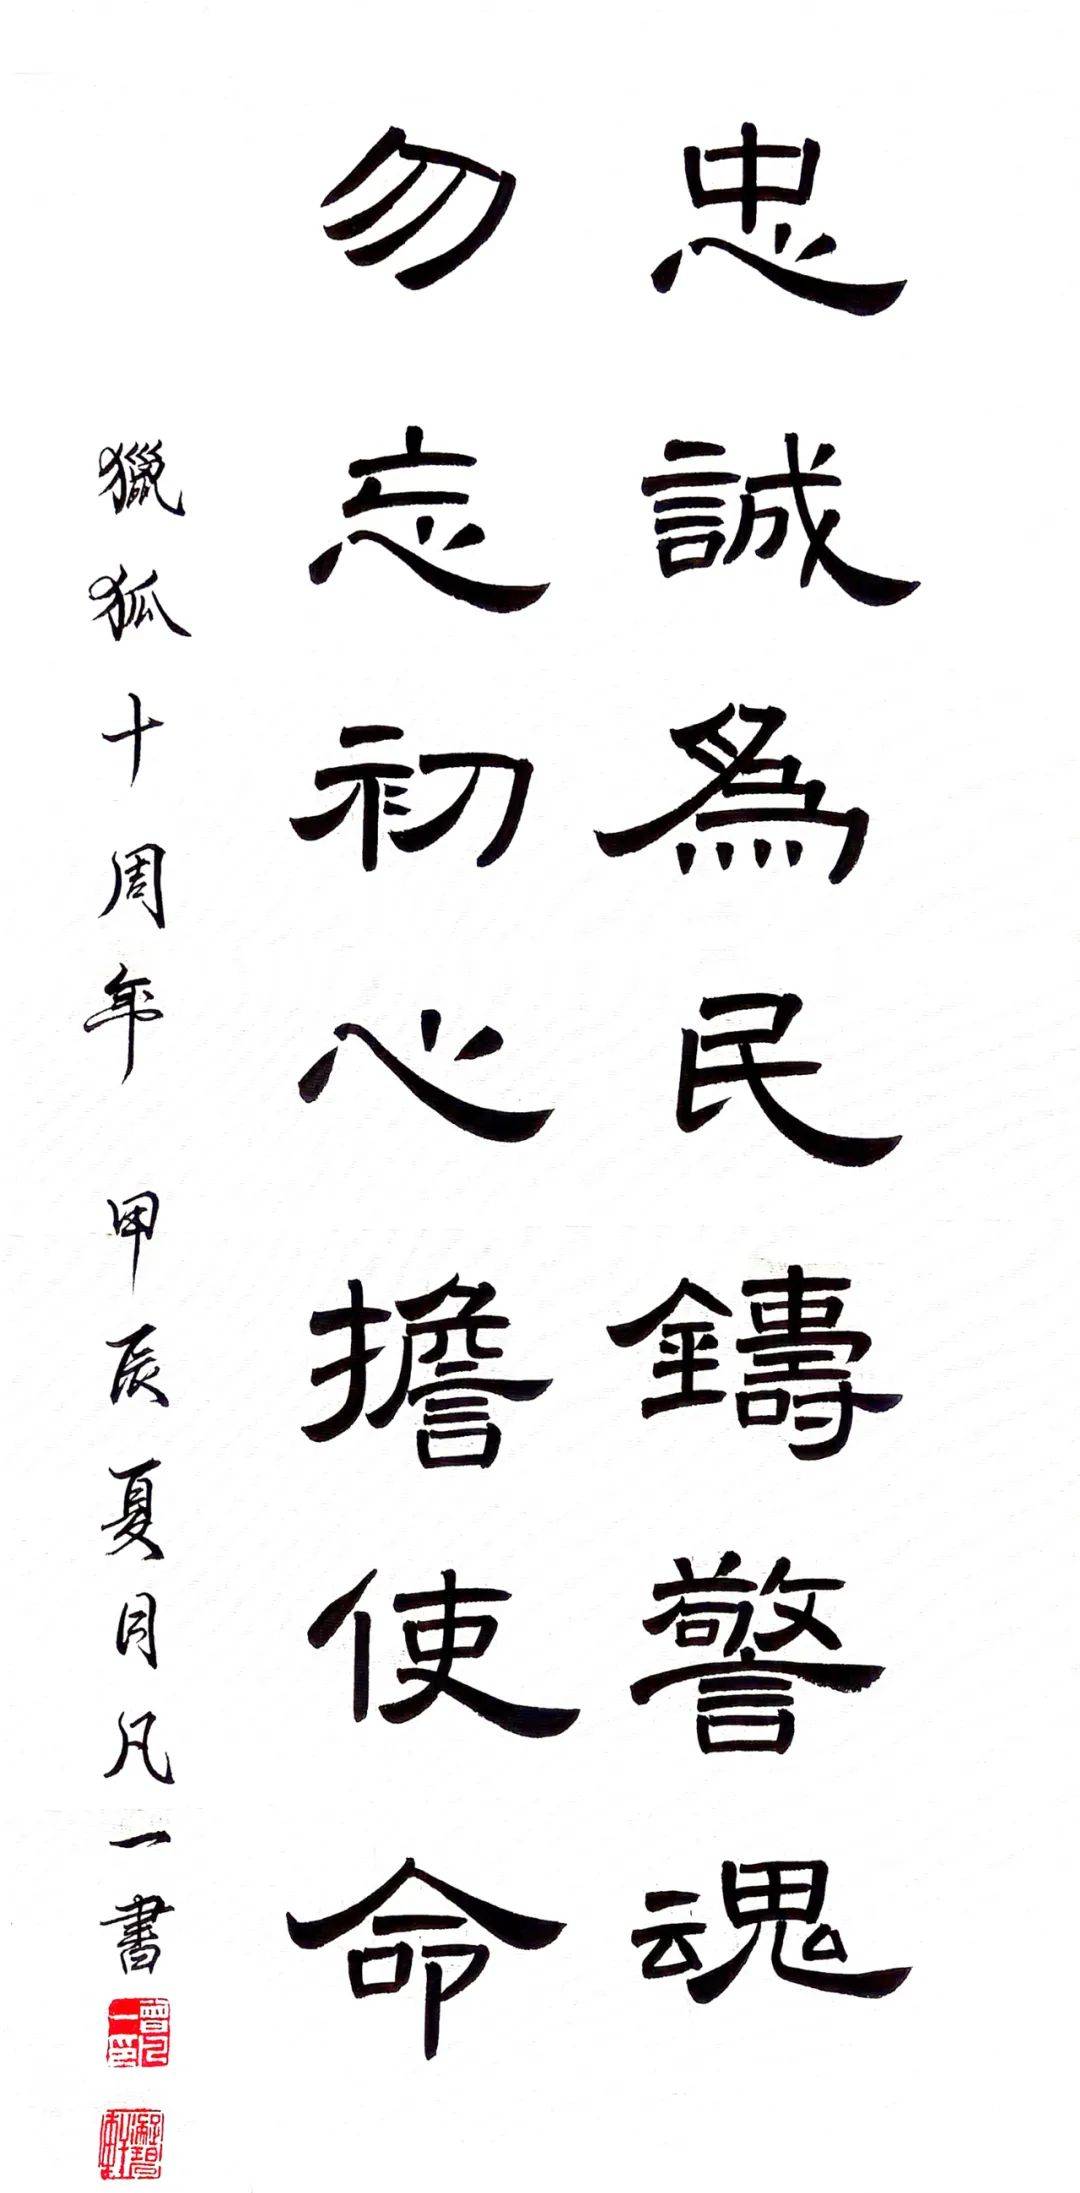 忠誠為民鑄警魂
勿忘初心擔使命
獵狐十周年 甲辰夏月凡一書
曾凡一印